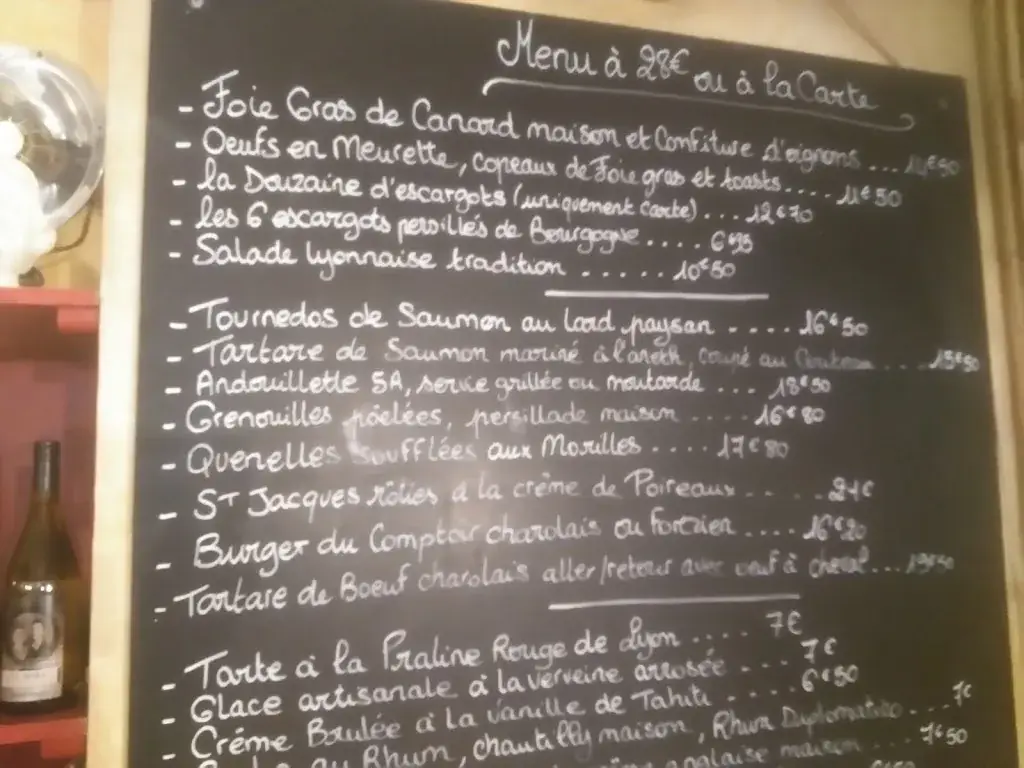 Menu à 28€ ou à la Carte
- Foie Gras de Canard maison et Confiture d'oignons ...
- Oeufs en Meurette, copeaux de Foie gras et toasts.... 11€50
- la Douzaine d'escargots (uniquement Carte) ... 12€70
- les 6 escargots persillés de Bourgogne .... 6€95
- Salade lyonnaise tradition ...... 10€50
- Tournedos de Saumon au lard paysan .... 16€50
- Tartare de Saumon mariné à l'aneth, coupé au Couteau ....
- Andouillette 5A, servie grillée ou moutarde ... 18€50
- Grenouilles poêlées, persillade maison .... 16€80
- Quenelles Soufflées aux Morilles .... 17€80
- ST Jacques rôties à la crème de Poireaux ... 21€
- Burger du Comptoir charolais ou .... 16€20
- Tartare de Boeuf charolais aller/retour avec oeuf à cheval...
- Tarte à la Praline Rouge de Lyon .... 7€
- Glace artisanale à la verveine arrosée ... 7€
- Crème Brulée à la vanille de Tahiti .... 6€50
au Rhum, chantilly maison, Rhum Diplomatico ... 7€
anglaise maison ... 7€50